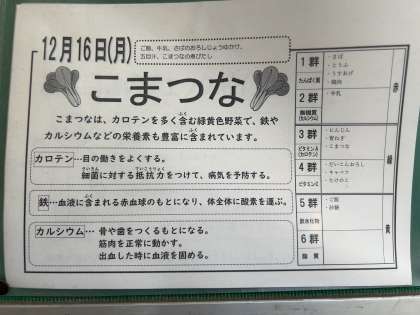 12月16日(月)
ご飯、牛乳、さばのおろしじょうゆかけ、
五目汁、こまつなの煮びたし
こまつな
こまつなは、カロテンを多く含む緑黄色野菜で、鉄や
ふく
カルシウムなどの栄養素も豊富に含まれています。
ふく
カロテン…目の働きをよくする。
さいきん ていこうりょく
細菌に対する抵抗力をつけて、病気を予防する。
ふく
鉄…血液に含まれる赤血球のもとになり、体全体に酸素を運ぶ。
カルシウム…骨や歯をつくるもとになる。
筋肉を正常に動かす。
出血した時に血液を固める。
1群
たんぱく質
・さば
・とうふ
・うすあげ
・鶏肉
2群
無機質
(カルシウム)
・牛乳
赤
3群
ビタミンA
(カロテン)
・にんじん
・青ねぎ
・こまつな
4群
ビタミンC
・だいこんおろし
・キャベツ
・たけのこ
緑
5群
炭水化物
・ご飯
・砂糖
6群
脂質
黄